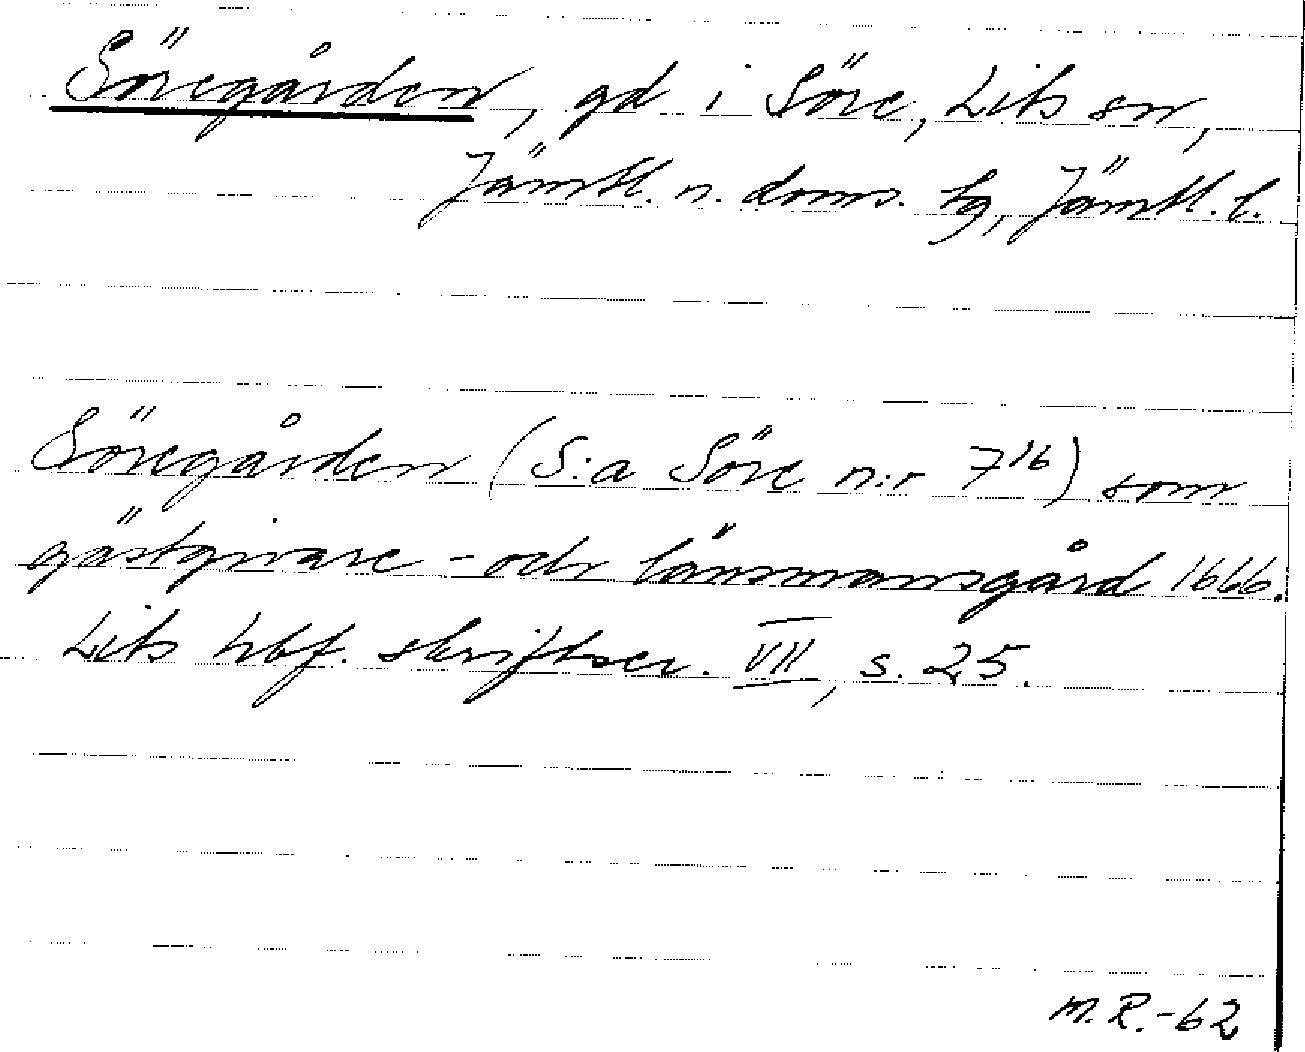 Söregården, gd i Söre, Lits sn,
Jämtl. n. doms. tg, Jämtl. l.
Söregården (S:a Söre n:r 7¹⁶) som
gästgivare- och länsmansgård 1666.
Lits hbf. skriftser. VII, s. 25.
M.R.-62